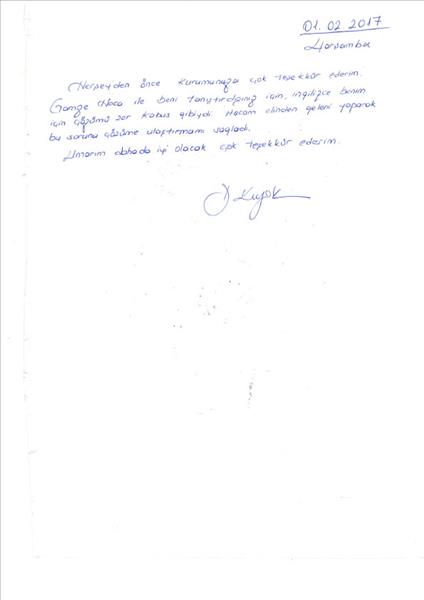 01.02.2017
Çarşamba
Herşeyden önce kurumunuza çok teşekkür ederim.
Gamze Hoca ile beni tanıştırdığınız için, ingilizce benim
için çözümü zor kabus gibiydi. Hocam elinden geleni yaparak
bu sorunu çözüme ulaştırmamı sağladı.
Umarım dahada iyi olacak çok teşekkür ederim.